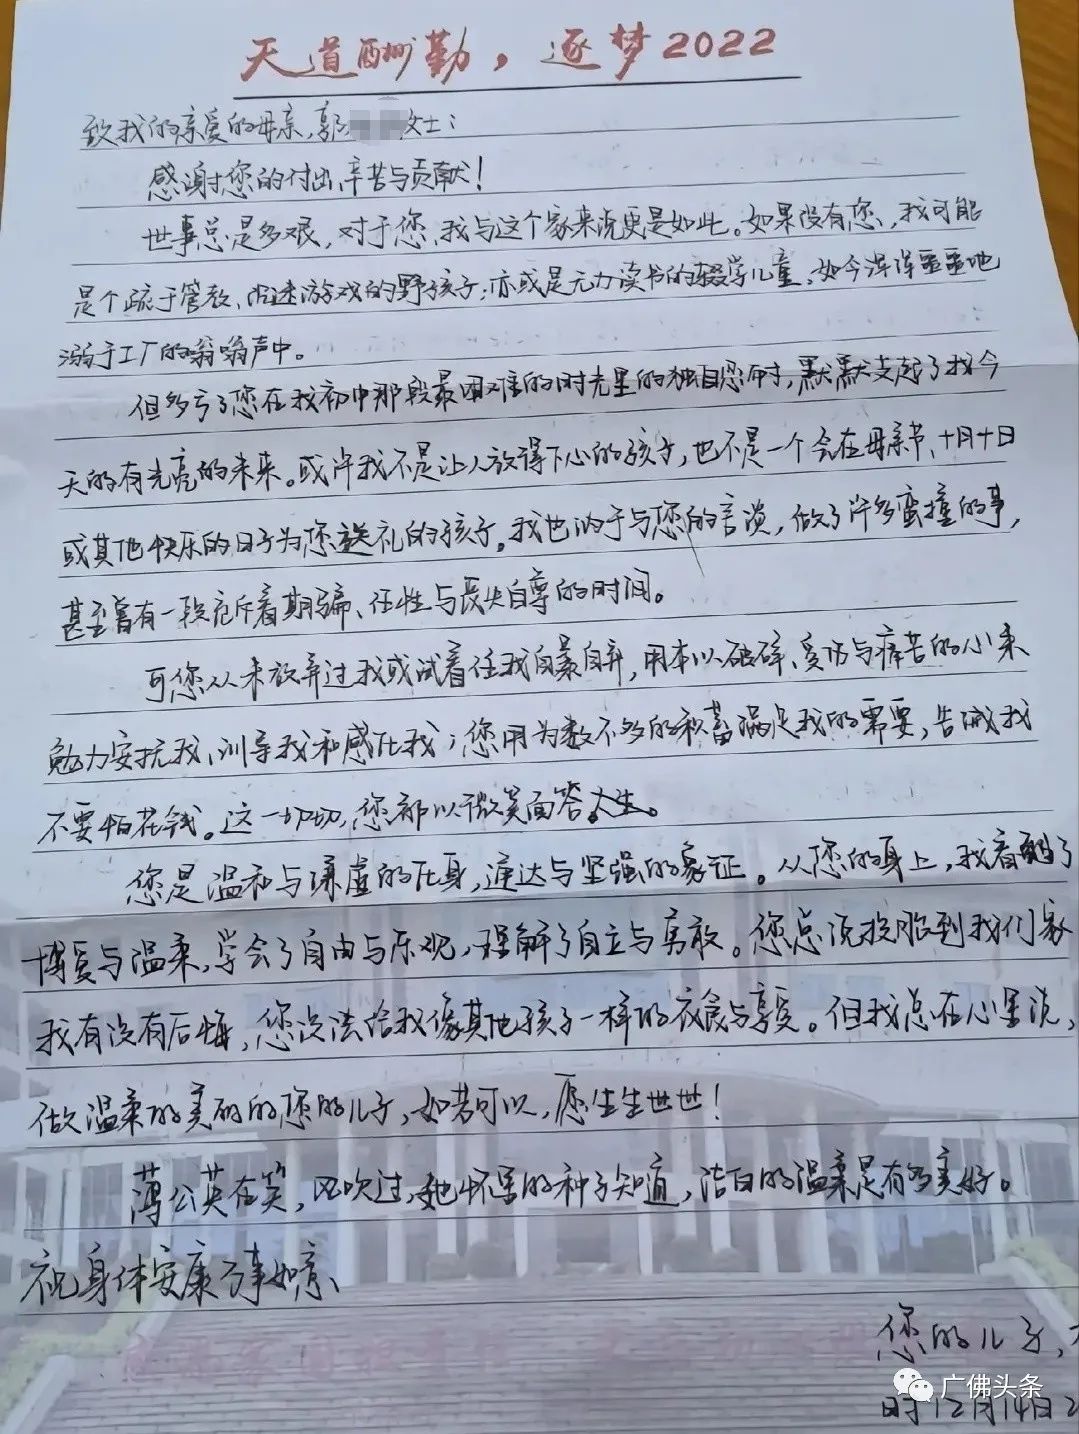 天道酬勤，逐梦2022
致我的亲爱的母亲，郭女士：
感谢您的付出、辛苦与贡献！
世事总是多艰，对于您、我与这个家来说更是如此。如果没有您，我可能
是个疏于管教、沉迷游戏的野孩子；亦或是无力读书的辍学儿童，如今浑浑噩噩地
溺于工厂的嗡嗡声中。
但多亏了您在我初中那段最困难的时光里的独自您时，默默支起了我今
天的有光亮的未来。或许我不是让人放得下心的孩子，也不是一个会在母亲节、十月十日
或其他快乐的日子为您送礼的孩子。我也讷于与您的言谈，做了许多蛮撞的事，
甚至曾有一段充斥着期骗、任性与丧失自尊的时间。
可您从未放弃过我或试着任我自暴自弃，用本以破碎、受伤与痛苦的心来
勉力安抚我、训导我和感化我；您用为数不多的积蓄满足我的需要，告诫我
不要怕花钱。这一切切，您都以微笑面答人生。
您是温和与谦虚的化身，通达与坚强的象征。从您的身上，我看到了
博爱与温柔，学会了自由与乐观，理解了自立与勇敢。您总说投胎到我们家
我有没有后悔，您没法给我像其他孩子一样的衣食与享受。但我总在心里说，
做温柔的美丽的您的儿子，如若可以，愿生生世世！
蒲公英在笑，风吹过，她怀里的种子知道，洁白的温柔是有多美好。
祝身体安康万事如意、
您的儿子，
时12月14日
广佛头条